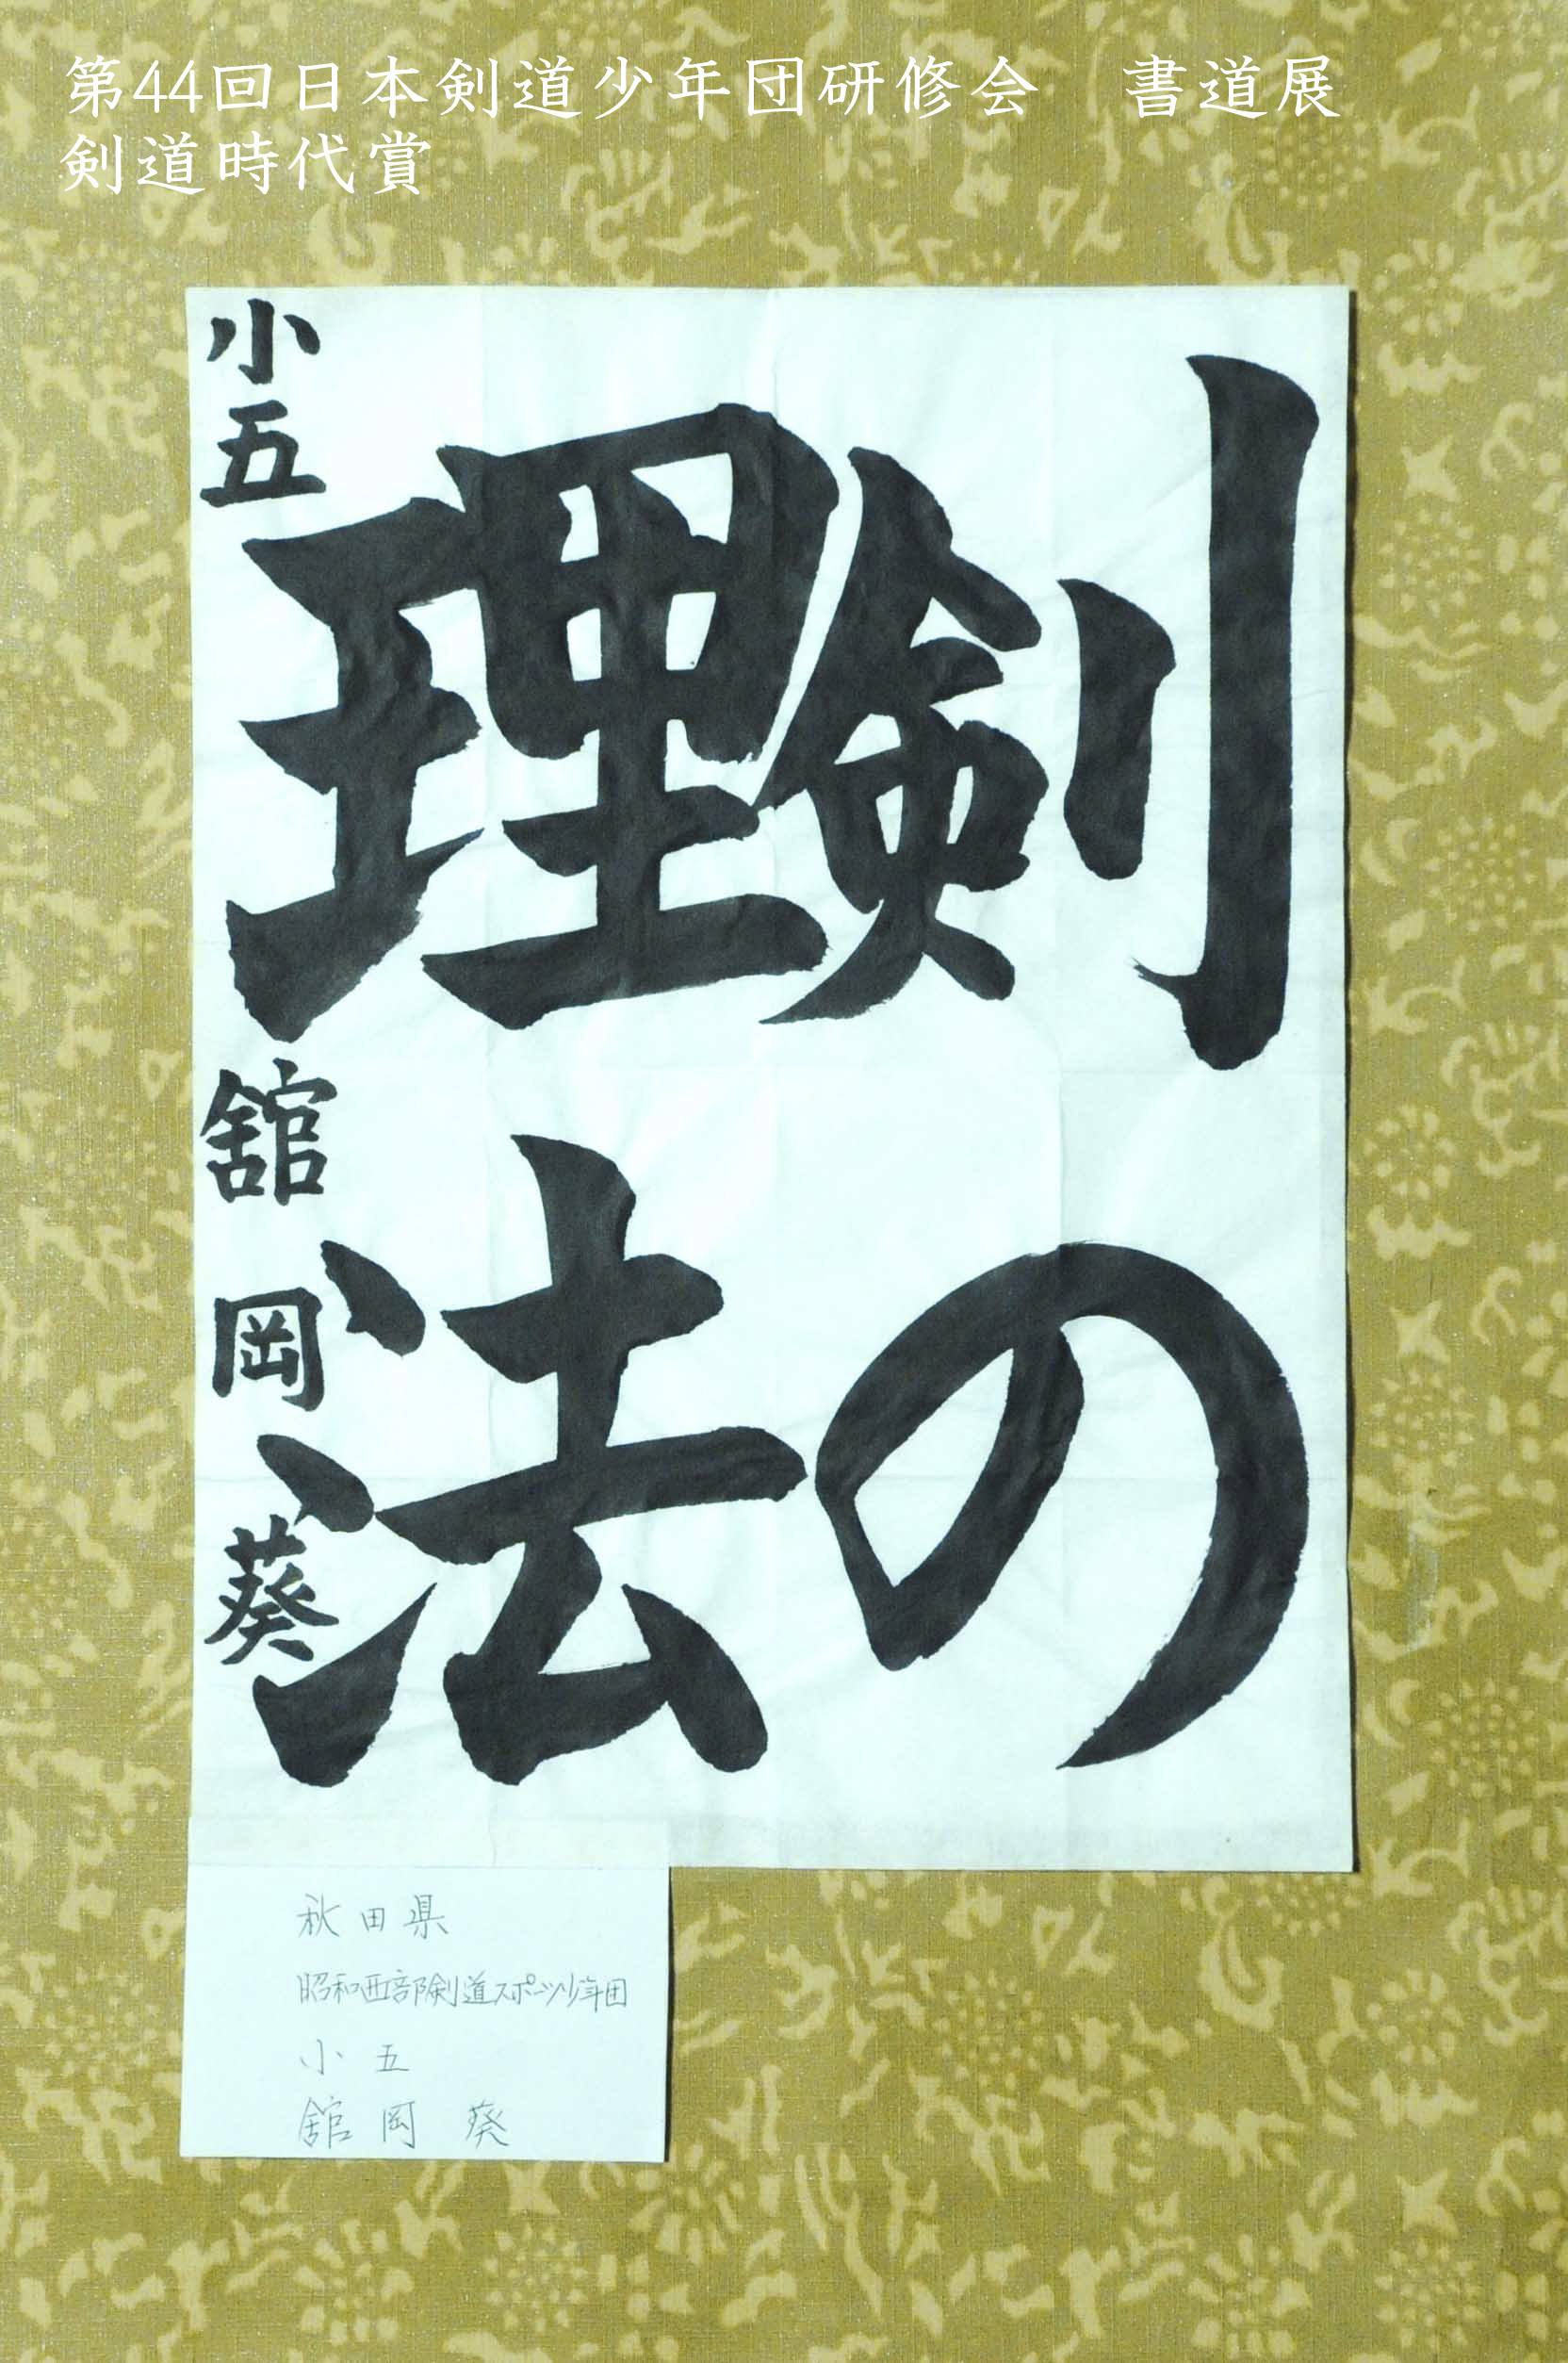 第44回日本剣道少年団研修会　書道展
剣道時代賞
剣の
理法
小五 舘岡葵
秋田県
昭和西部剣道スポーツ少年団
小五
舘岡 葵